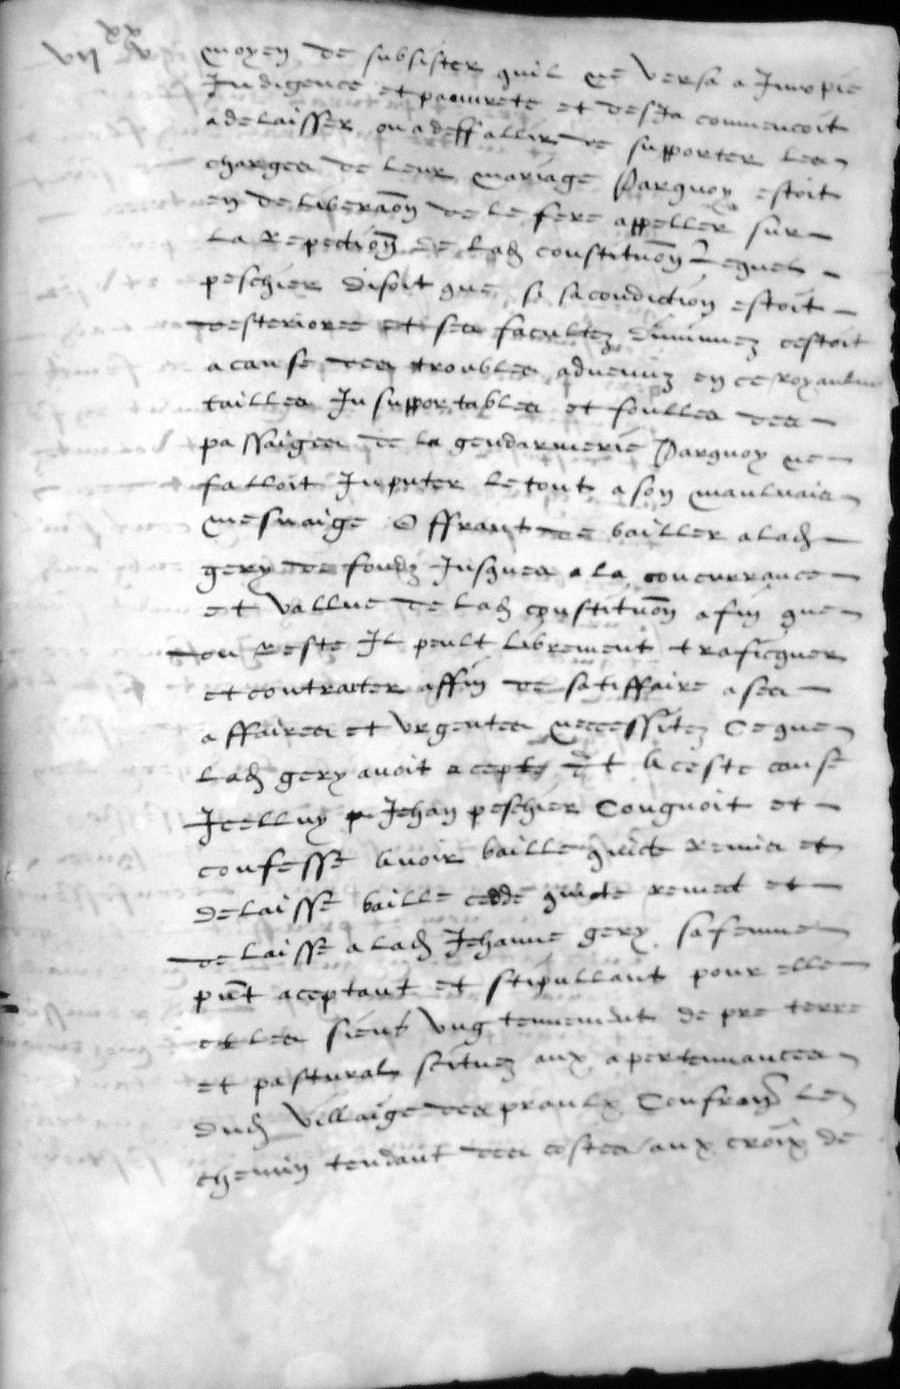 vii xx v
moyen de subsister quil ne versa a Inopie
Indigence et pauvrete et desja commencoit
a delaisser ou a deffallir de supporter les
charges de leur mariage Parquoy estoit
en deliberaon de le fere appeller sur
la Repection de lad constituon Lequel
peschier disoit que si sa condiction estoit
desterioree et ses facultez diminuez cestoit
a cause des troubles advenuz en ce royaulme
tailles Insupportables et foulles des
passaiges de la gendarmerie Parquoy ne
falloit Inputer le tout a son maulvais
mesnaige Offrant de bailler a lad
gery de fondz Jusques a la concurrance
et vallue de lad constituon afin que
du reste Il peult librement traficquer
et contracter affin de satiffaire a ses
affaires et urgentes neccessitez Ce que
lad gery avoit acepte Et A ceste cause
Icelluy Jehan peschier Congnoit et
confesse Avoir baille quicte remis et
delaisse baille cedde quicte remect et
delaisse a lad Jehanne gery sa femme
pnt aceptant et stipullant pour elle
et les siens Ung tennement de pre terre
et pastural scituez aux apertennances
dud Villaige des praulx Confron le
chemin tendant des costes aux croix de